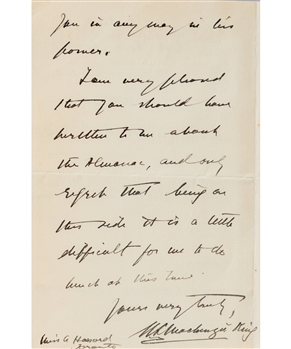 you in any way in his
power.
I am very pleased
that you should have
written to me about
the Almanac, and only
regret that being on
this side it is a little
difficult for me to do
much at this time.
Yours very truly,
W L Mackenzie King
Miss A Howard
Toronto